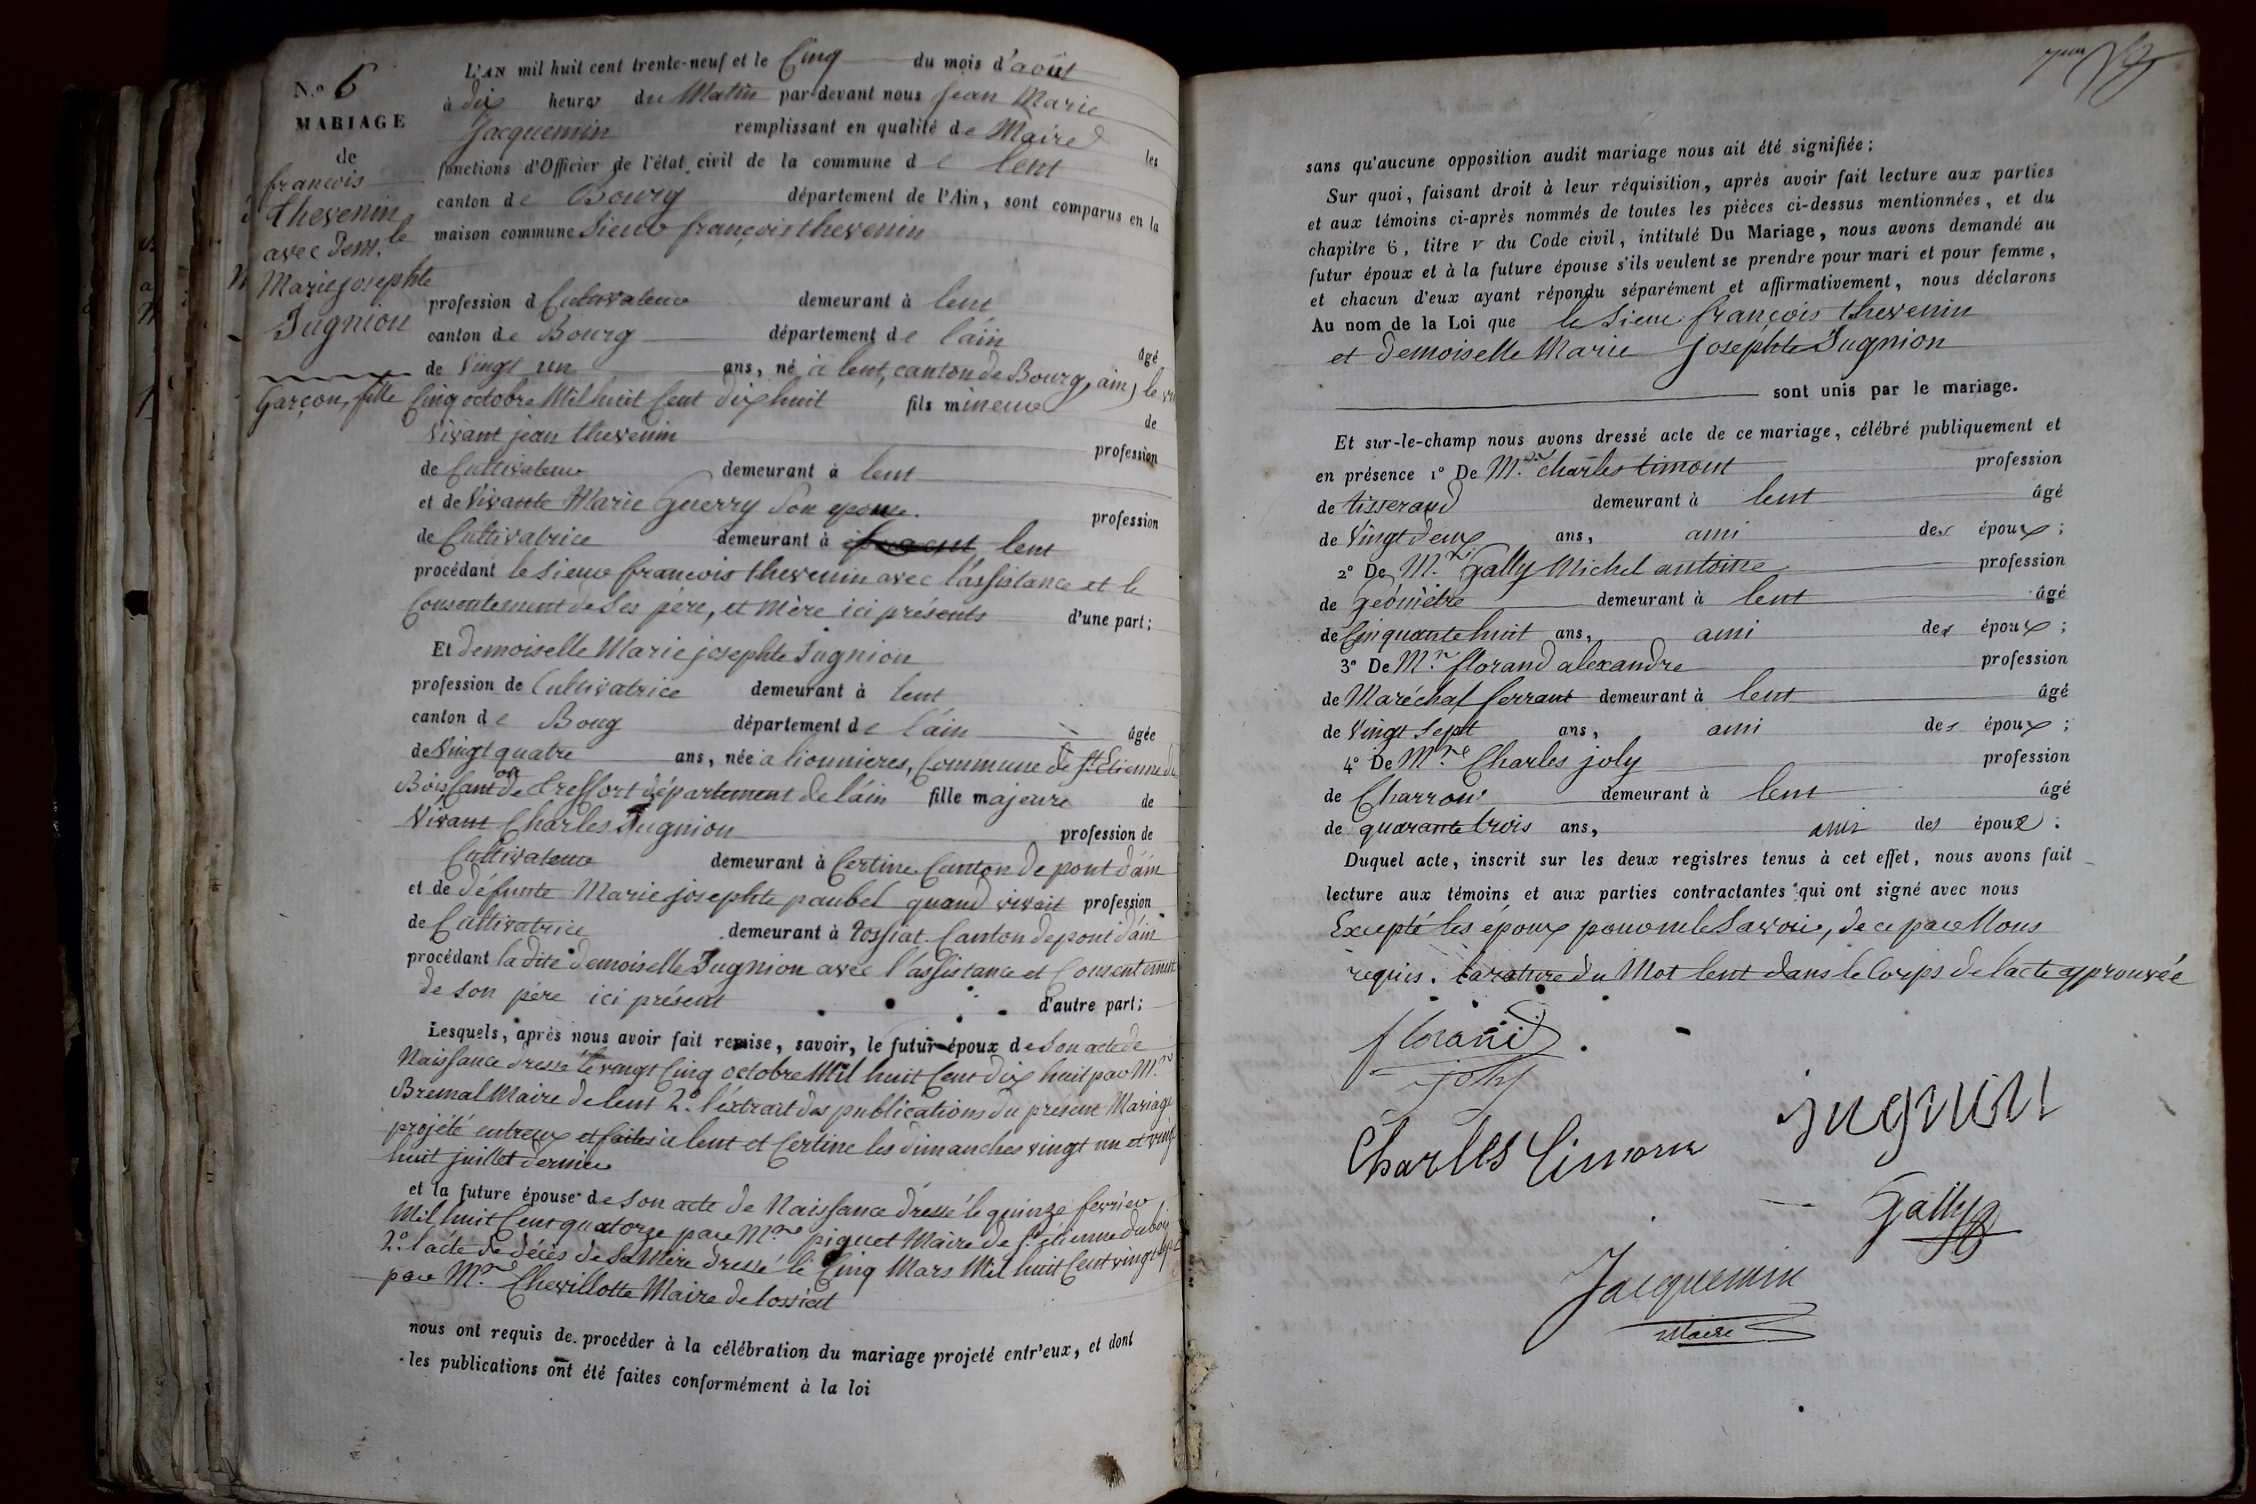 N.° 6
MARIAGE
de
françois
thevenin
avec dem.le
Marie josephte
Jugnion
Garçon, fille
L'AN mil huit cent trente-neuf et le Cinq du mois d'août
à dix heures du Matin par-devant nous jean Marie
Jacquemin remplissant en qualité de Maire les
fonctions d'Officier de l'état civil de la commune de lent
canton de Bourg département de l'Ain, sont comparus en la
maison commune Sieur françois thevenin
profession d Cultivateur demeurant à lent
canton de Bourg département de l'ain âgé
de Vingt un ans, né à lent, canton de Bourg, ain, le
Cinq octobre Mil huit Cent dix huit fils mineur de
Vivant jean thevenin profession
de Cultivateur demeurant à lent
et de Vivante Marie Guerry Son epouse. profession
de Cultivatrice demeurant à lent
procédant le Sieur francois thevenin avec l'assistance et le
Consentement de Ses père, et Mère ici présents d'une part;
Et demoiselle Marie josephte Jugnion
profession de Cultivatrice demeurant à lent
canton de Boug département de l'ain âgée
de Vingt quatre ans, née à lionnieres, Commune de St Etienne du
Bois Canton de treffort département de l'ain fille majeure de
Vivant Charles Jugnion profession de
Cultivateur demeurant à Certine Canton de pont d'ain
et de défunte Marie josephte paubel quand vivait profession
de Cultivatrice demeurant à tossiat Canton de pont d'ain
procédant la dite demoiselle Jugnion avec l'assistance et Consentement
de son père ici présent d'autre part;
Lesquels, après nous avoir fait remise, savoir, le futur époux de Son acte de
Naissance dressé le vingt Cinq octobre Mil huit Cent dix huit par M.r
Bremal Maire de lent 2.° l'extrait des publications du présent Mariage
projété entreux et faites à lent et Certine les dimanches vingt un et vingt
huit juillet dernier
et la future épouse de Son acte de Naissance dressé le quinze fevrier
Mil huit Cent quatorze par M.r piquet Maire de St étienne du bois
2.° l'acte de décès de Sa Mère dressé le Cinq Mars Mil huit Cent vingt
par M.r Chevillotte Maire de tossiat
nous ont requis de procéder à la célébration du mariage projeté entr'eux, et dont
les publications ont été faites conformément à la loi
sans qu'aucune opposition audit mariage nous ait été signifiée;
Sur quoi, faisant droit à leur réquisition, après avoir fait lecture aux parties
et aux témoins ci-après nommés de toutes les pièces ci-dessus mentionnées, et du
chapitre 6, titre v du Code civil, intitulé Du Mariage, nous avons demandé au
futur époux et à la future épouse s'ils veulent se prendre pour mari et pour femme,
et chacun d'eux ayant répondu séparément et affirmativement, nous déclarons
Au nom de la Loi que le Sieur françois thevenin
et demoiselle Marie josephte Jugnion
sont unis par le mariage.
Et sur-le-champ nous avons dressé acte de ce mariage, célébré publiquement et
en présence 1° De M.r charles timont profession
de tisserand demeurant à lent âgé
de Vingt deux ans, ami des époux;
2° De M.r Gally Michel antoine profession
de geomètre demeurant à lent âgé
de Cinquante huit ans, ami des époux;
3° De M.r florand alexandre profession
de Maréchal ferrant demeurant à lent âgé
de Vingt Sept ans, ami des époux;
4° De M.r Charles joly profession
de Charron demeurant à lent âgé
de quarante trois ans, ami des époux.
Duquel acte, inscrit sur les deux registres tenus à cet effet, nous avons fait
lecture aux témoins et aux parties contractantes qui ont signé avec nous
Excepté les époux pour ne le Savoir, de ce par Nous
requis. la rature du Mot lent dans le Corps de l'acte approuvée
florand
joly
jugnion
Charles Timon
Gally
Jacquemin
Maire